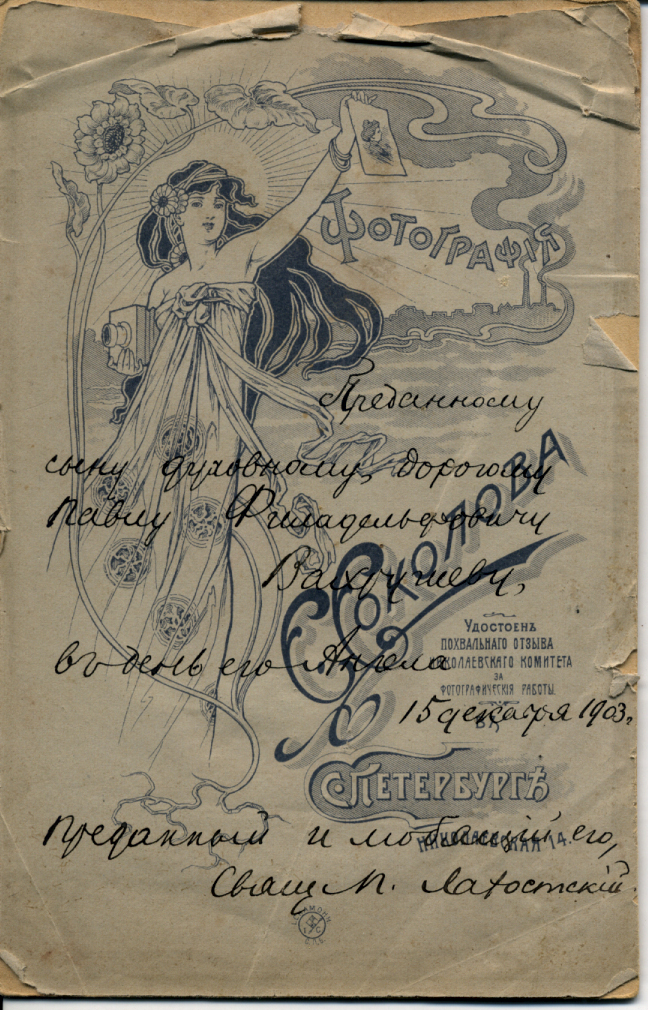 Фотографія
Преданному
сыну духовному, дорогому
Павлу Филадельфовичу
Вахрушеву,
Соколова
Удостоенъ
похвальнаго отзыва
Николаевскаго комитета
за
фотографическія работы
въ день его Ангела
15 декабря 1903.
въ
С.Петербургѣ
Преданный и любящій его,
Николаевская 14.
Свящ. М.